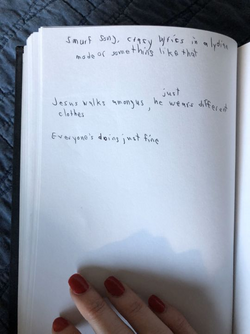 Smurf song, crazy lyrics in a lydian
mode or something like that
just
Jesus walks among us, he wears different
clothes
Everyone's doing just fine